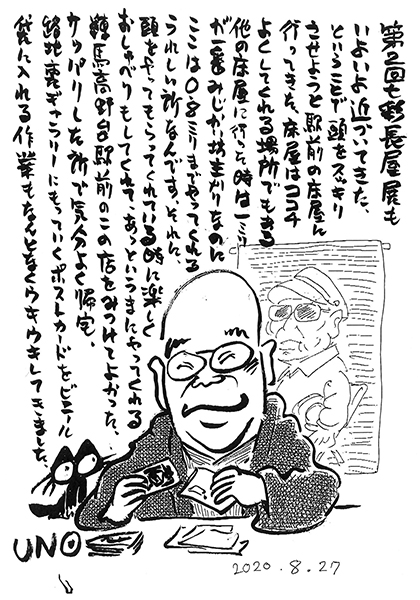 第2回七彩長屋展も
いよいよ近づいてきた、
ということで頭をスッキリ
させようと駅前の床屋に
行ってきた、床屋はココチ
よくしてくれる場所でもある
他の床屋に行った時は一ミリ
が一番みじかい坊主刈りなのに
ここは0.8ミリまでやってくれる
うれしい所なんです、それに、
頭をやってもらってくれている時に楽しく
おしゃべりもしてくれて、あっというまにやってくれる
練馬高野台駅前のこの店をみつけてよかった、
サッパリした所で気分よく帰宅、
路地裏ぎゃらりーにもっていくポストカードをビニール
袋に入れる作業もなんとなくウキウキしてきました、
UNO
2020.8.27